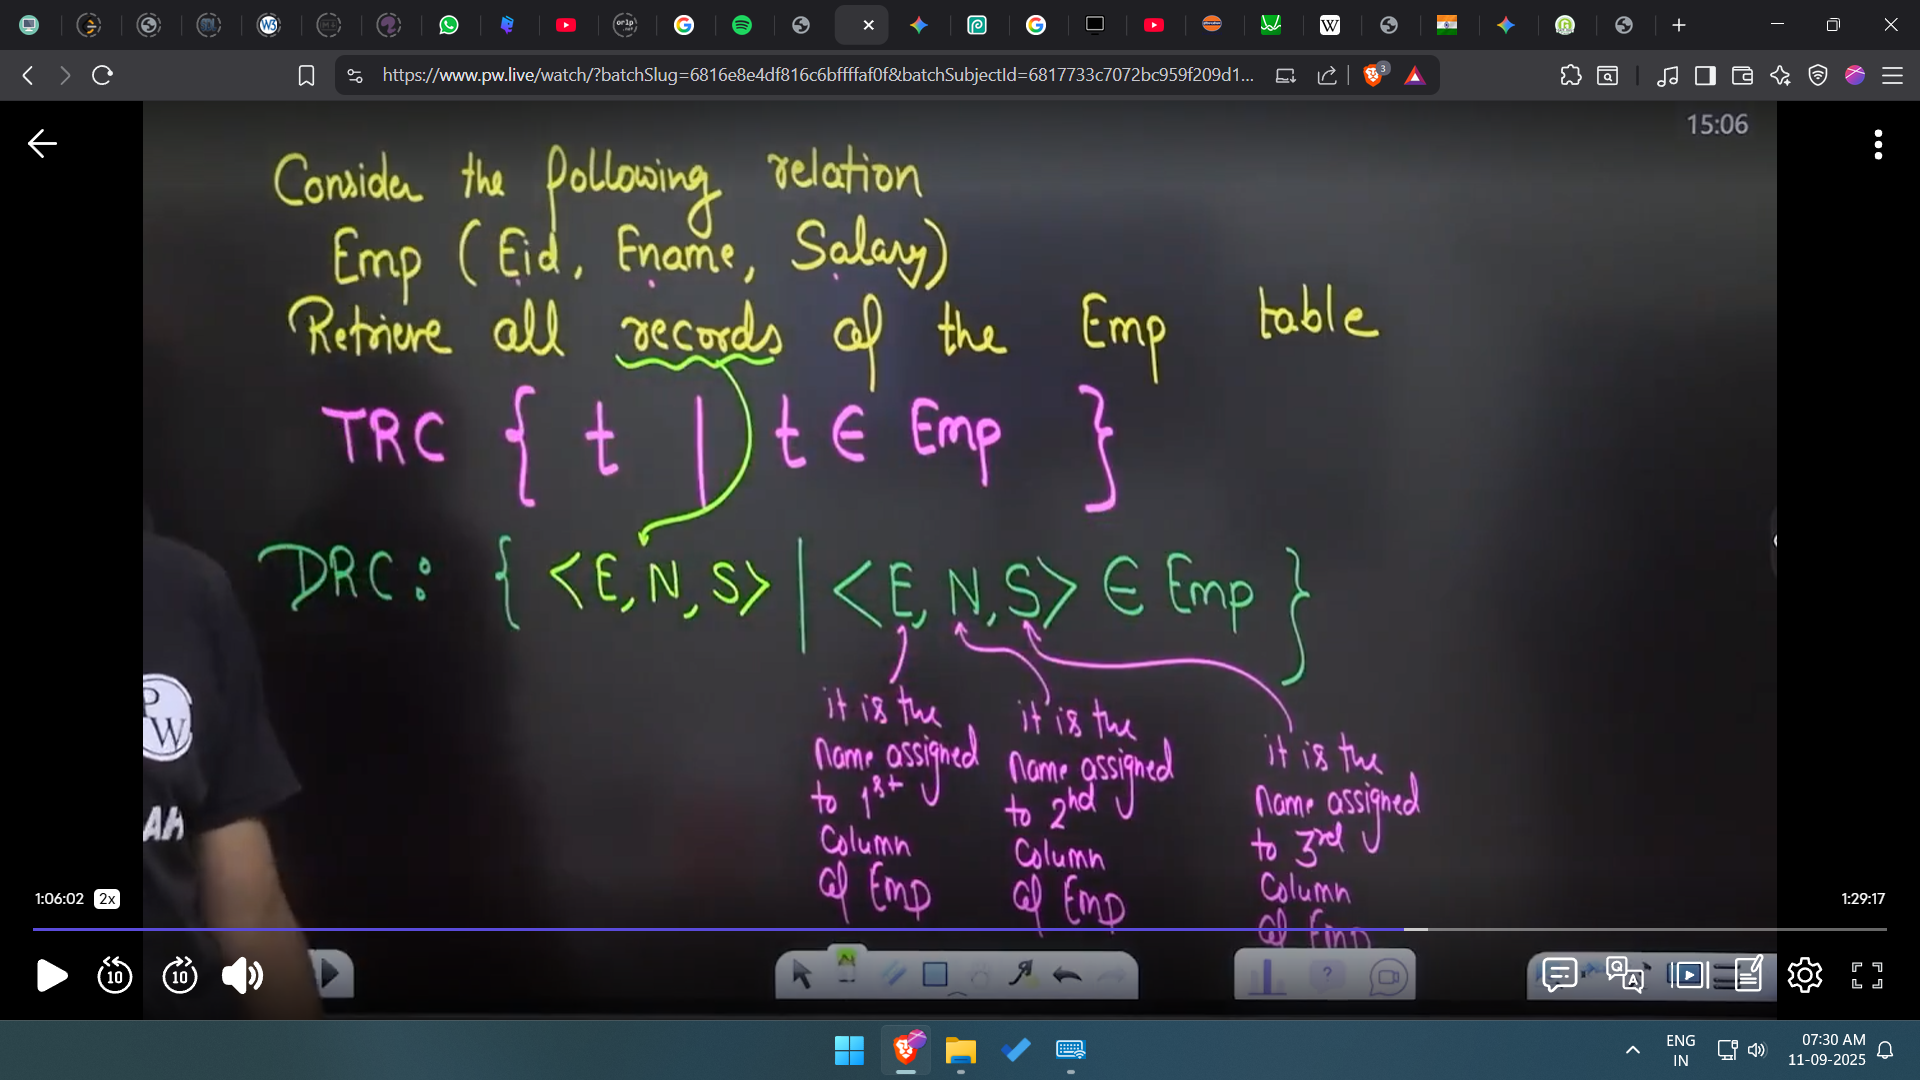 https://www.pw.live/watch/?batchSlug=6816e8e4df816c6bffffaf0f&batchSubjectId=6817733c7072bc959f209d1...
3
15:06
Consider the following relation
Emp (Eid, Ename, Salary)
Retrieve all records of the Emp table
TRC { t | t ∈ Emp }
DRC: { <E, N, S> | <E, N, S> ∈ Emp }
it is the
name assigned
to 1st
Column
of Emp
it is the
name assigned
to 2nd
Column
of Emp
it is the
name assigned
to 3rd
Column
of Emp
PW
1:06:02 2x
1:29:17
10 10
ENG
IN
07:30 AM
11-09-2025